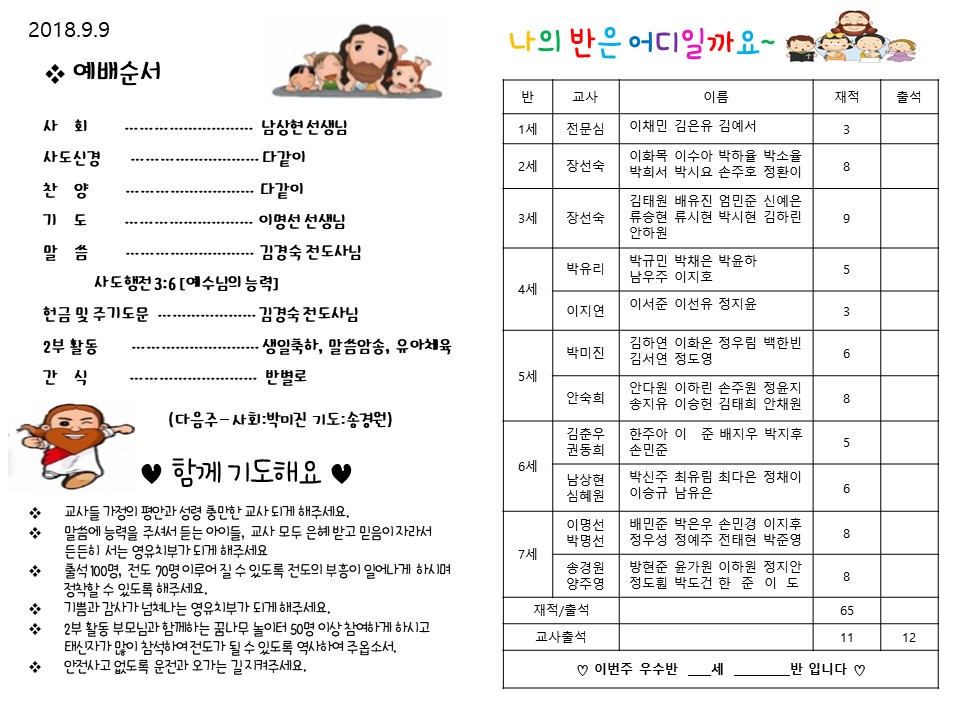 2018.9.9
❖ 예배순서
사 회 ---------------------------- 남상현 선생님
사도신경 ---------------------------- 다같이
찬 양 ---------------------------- 다같이
기 도 ---------------------------- 이명선 선생님
말 씀 ---------------------------- 김경숙 전도사님
사도행전 3:6 [예수님의 능력]
헌금 및 주기도문 --------------------- 김경숙 전도사님
2부 활동 ---------------------------- 생일축하, 말씀암송, 유아체육
간 식 ---------------------------- 반별로
(다음주-사회:박미진 기도:송경원)
♥ 함께 기도해요 ♥
❖ 교사들 가정의 평안과 성령 충만한 교사 되게 해주세요.
❖ 말씀에 능력을 주셔서 듣는 아이들, 교사 모두 은혜 받고 믿음이 자라서
든든히 서는 영유치부가 되게 해주세요
❖ 출석 100명, 전도 70명 이루어 질 수 있도록 전도의 부흥이 일어나게 하시며
정착할 수 있도록 해주세요.
❖ 기쁨과 감사가 넘쳐나는 영유치부가 되게 해주세요.
❖ 2부 활동 부모님과 함께하는 꿈나무 놀이터 50명 이상 참여하게 하시고
태신자가 많이 참석하여 전도가 될 수 있도록 역사하여 주옵소서.
❖ 안전사고 없도록 운전과 오가는 길 지켜주세요.
나의 반은 어디일까요~
반 교사 이름 재적 출석
1세 전문심 이채민 김은유 김예서 3
2세 장선숙 이화목 이수아 박하율 박소율 8
박희서 박시요 손주호 정환이
3세 장선숙 김태원 배유진 엄민준 신예은 9
류승현 류시현 박시현 김하린
안하원
4세 박유리 박규민 박채은 박윤하 5
남우주 이지호
이지연 이서준 이선유 정지윤 3
5세 박미진 김하연 이화온 정우림 백한빈 6
김서연 정도영
안숙희 안다원 이하린 손주원 정윤지 8
송지유 이승헌 김태희 안채원
6세 김춘우 한주아 이 준 배지우 박지후 5
권동희 손민준
남상현 박신주 최유림 최다은 정채이 6
심혜원 이승규 남유은
7세 이명선 배민준 박은우 손민경 이지후 8
박명선 정우성 정예주 전태현 박준영
송경원 방현준 윤가원 이하원 정지안 8
양주영 정도훤 박도건 한 준 이 도
재적/출석 65
교사출석 11 12
♡ 이번주 우수반 ___세 ________반 입니다 ♡